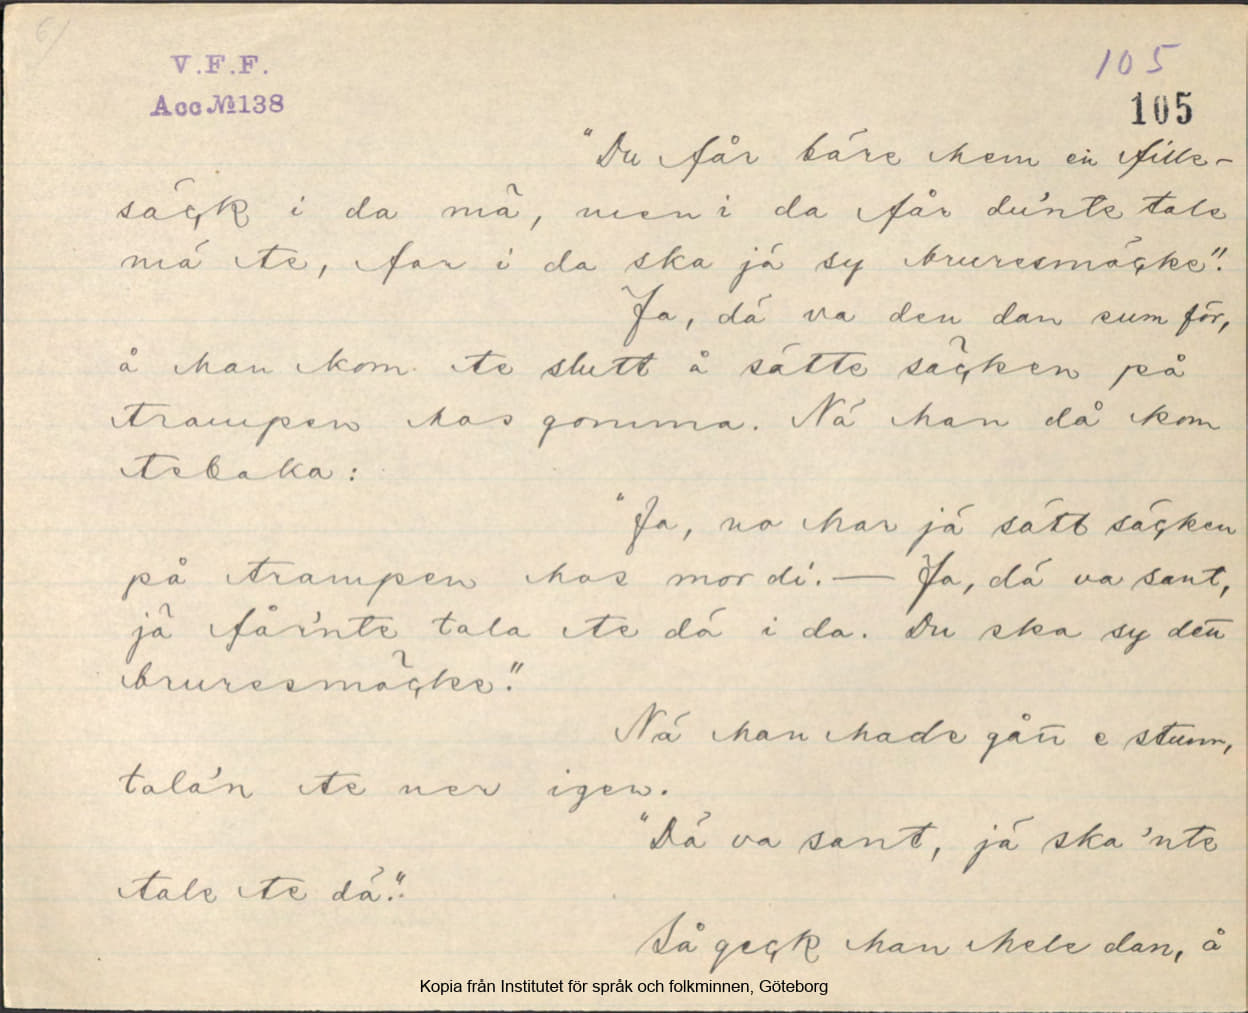 6/
V.F.F.
Acc № 138
105
105
"Du får bäre hem en fille-
säçk i da mä, men i da får du'nte tale
mä te, far i da ska jä sy bruresmäçke".
Ja, dä va den dan sum för,
å han kom te slutt å sätte säçken på
trampen has gomma. Nä han då kom
tebaka:
"Ja, no har jä sätt säçken
på trampen has mor di. — Ja, dä va sant,
jä får'nte tala te dä i da. Du ska sy den
bruresmäçke".
Nä han hade gån e stunn,
tala'n te ner igen.
"Dä va sant, jä ska'nte
tale te dä".
Så geçk han hele dan, å
Kopia från Institutet för språk och folkminnen, Göteborg